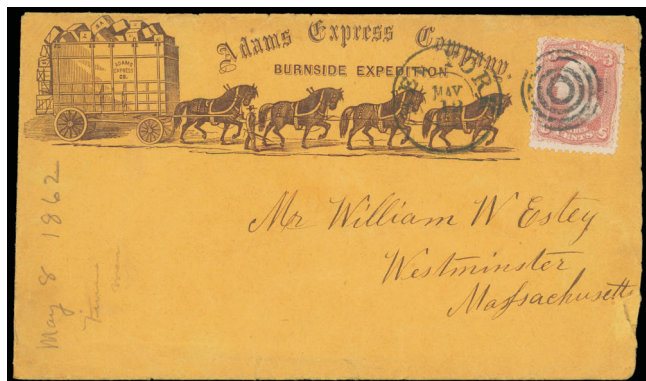 Adams Express Company,
BURNSIDE EXPEDITION
ADAMS
EXPRESS
CO.
YORK
MAY
3
CENTS
Mr William W Estey
Westminster
Massachusetts
May 8 1862